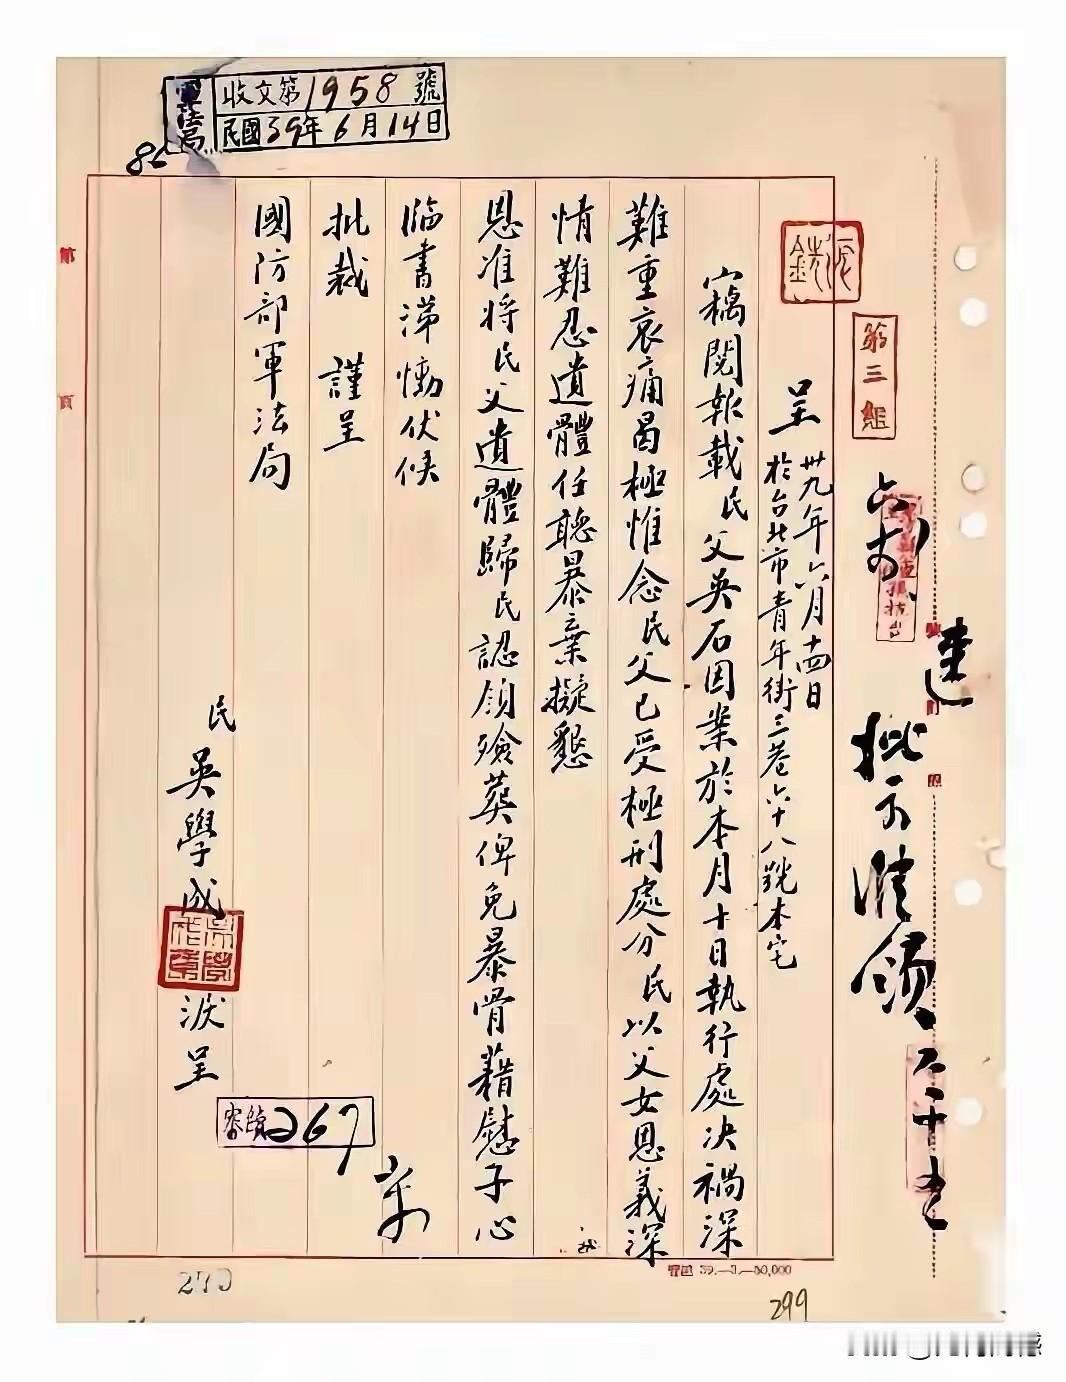 軍法局
收文第1958號
民國39年6月14日
86
第三組
呈 卅九年六月十四日
於台北市青年街三巷六十八號本宅
竊閱報載民父吳石因案於本月十日執行處决禍深
難重哀痛曷極惟念民父已受極刑處分民以父女恩義深
情難忍遺體任聽暴棄擬懇
恩准將民父遺體歸民認領殮葬俾免暴骨藉慰子心
臨書涕慟伏候
批裁 謹呈
國防部軍法局
民吳學成 淚呈
267
批示准領
六、十五
第
頁
270
299
39.—3.—50,000